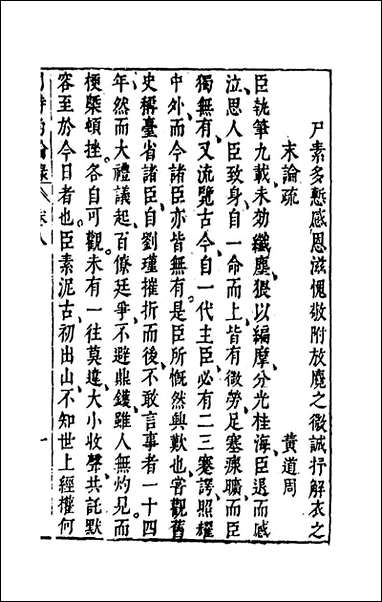 尸素多慙感恩滋愧敬附放麑之微誠抒解衣之
末論疏
黃道周
臣執筆九載未効纖塵猥以編摩分光桂海臣退而感
泣思人臣致身自一命而上皆有微勞足塞瘝曠而臣
獨無有又流覽古今自一代主臣必有二三蹇諤照耀
中外而今諸臣亦皆無有是臣所慨然興歎也甞觀舊
史稱臺省諸臣自劉瑾摧折而後不敢言事者一十四
年然而大禮議起百僚廷爭不避鼎鑊雖人無灼見而
梗槩頓挫各自可觀未有一往莫違大小收聲共託默
容至於今日者也臣素泥古初出山不知世上經權何
卷八
一